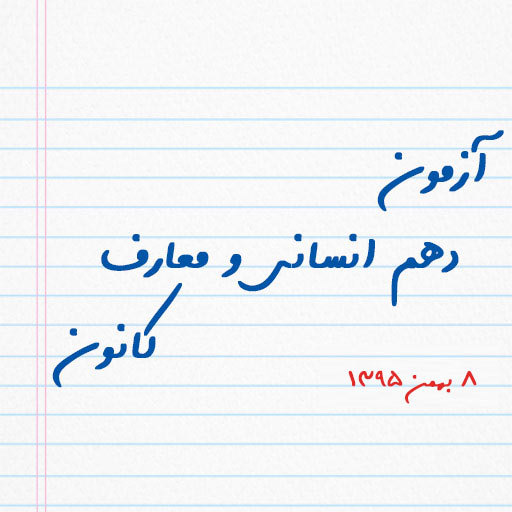 آزمون
دهم انسانی و معارف
کانون
۸ بهمن ۱۳۹۵